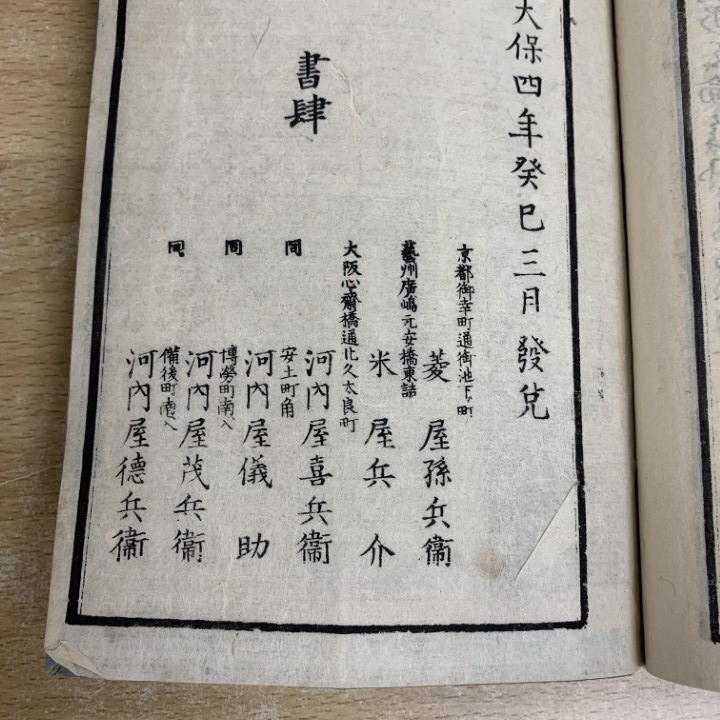 天保四年癸巳三月發兌
書肆
京都御幸町通御池下ル町
菱屋孫兵衞
藝州廣嶋元安橋東詰
米屋兵介
大阪心齋橋通北久太良町
河內屋喜兵衞
同 安土町角
河內屋儀助
同 博勞町南ヘ入
河內屋茂兵衞
同 備後町南ヘ入
河內屋德兵衞